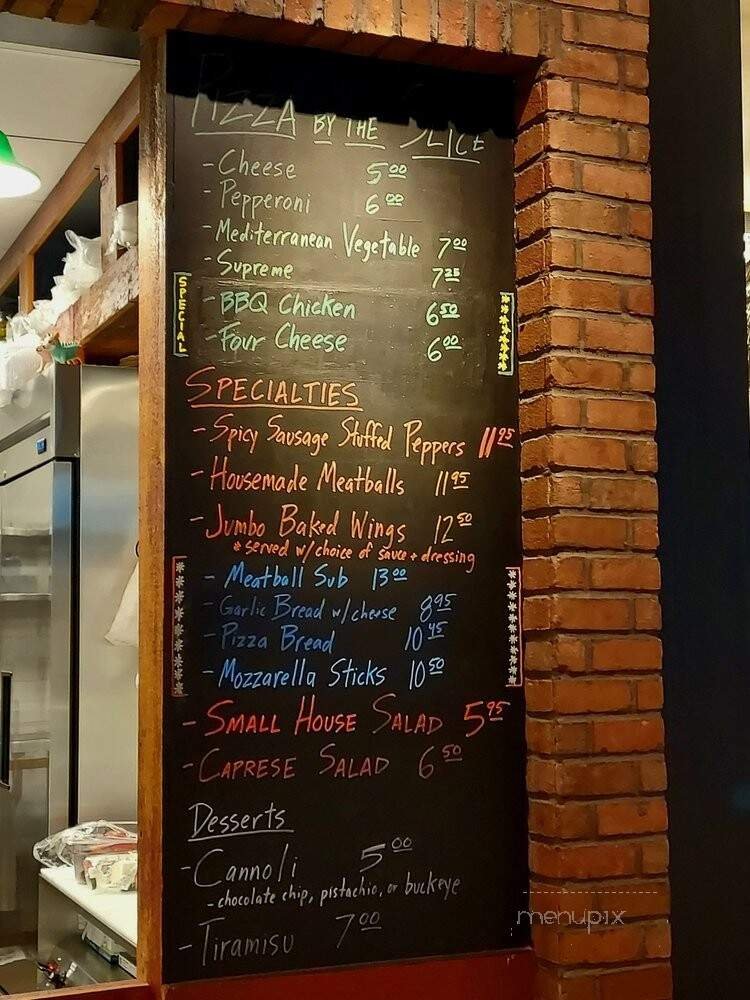 PIZZA BY THE SLICE
- Cheese 5 00
- Pepperoni 6 00
- Mediterranean Vegetable 7 00
- Supreme 7 25
SPECIAL
- BBQ Chicken 6 50
- Four Cheese 6 00
SPECIALTIES
- Spicy Sausage Stuffed Peppers 11 95
- Housemade Meatballs 11 95
- Jumbo Baked Wings 12 50
* served w/choice of sauce + dressing
- Meatball Sub 13 00
- Garlic Bread w/cheese 8 95
- Pizza Bread 10 45
- Mozzarella Sticks 10 50
- SMALL HOUSE SALAD 5 95
- CAPRESE SALAD 6 50
Desserts
- Cannoli 5 00
- chocolate chip, pistachio, or buckeye
- Tiramisu 7 00
menupix